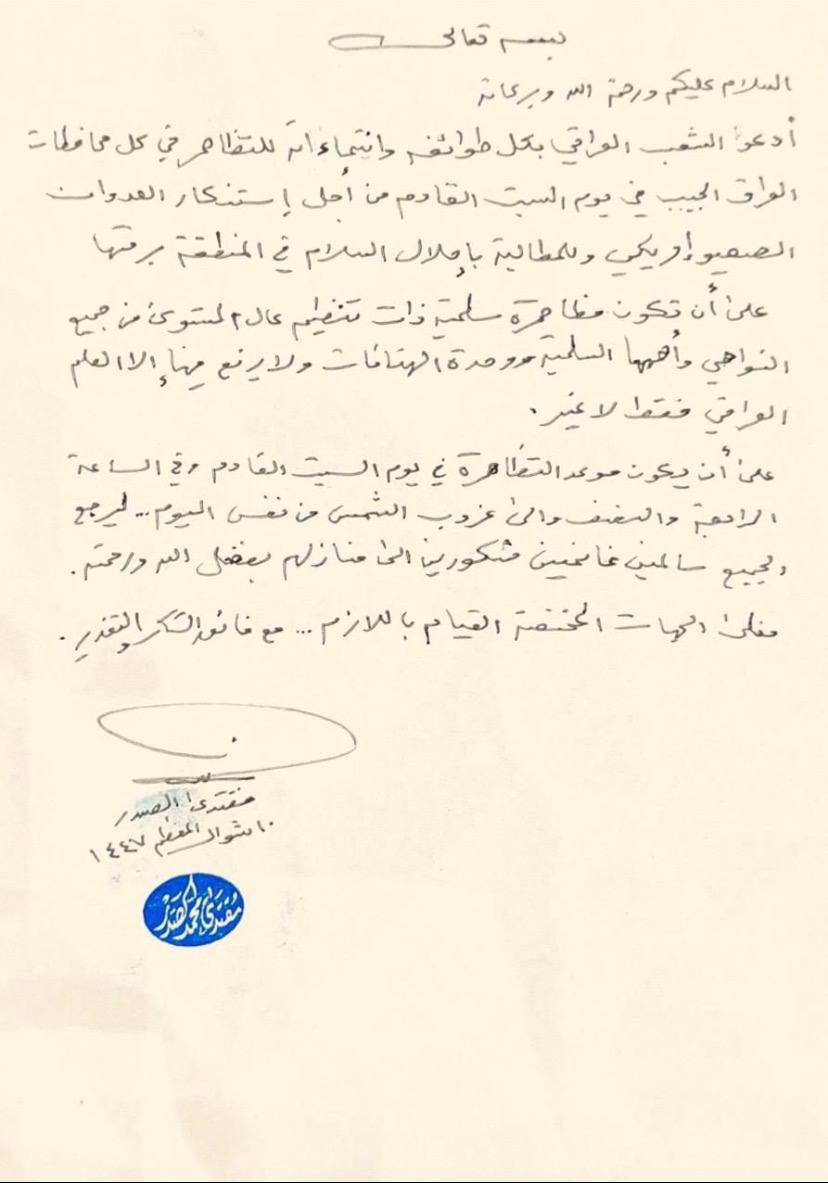 بسمه تعالى
السلام عليكم ورحمة الله وبركاته
أدعو الشعب العراقي بكل طوائفه وانتماءاته للتظاهر في كل محافظات
العراق الحبيب في يوم السبت القادم من أجل إستنكار العدوان
الصهيوإمريكي وللمطالبة بإحلال السلام في المنطقة برمتها
على أن تكون مظاهرة سلمية ذات تنظيم عال المستوى من جميع
النواحي وأهمها السلمية ووحدة الهتافات ولا يرفع فيها إلا العلم
العراقي فقط لا غير.
على أن يكون موعد التظاهرة في يوم السبت القادم وفي الساعة
الرابعة والنصف والى غروب الشمس من نفس اليوم... ليرجع
الجميع سالمين غانمين مشكورين الى منازلهم بفضل الله ورحمته.
فعلى الجهات المختصة القيام باللازم... مع فائق الشكر والتقدير.
مقتدى الصدر
١٠ شوال المعظم ١٤٤٧
مقتدى محمد الصدر